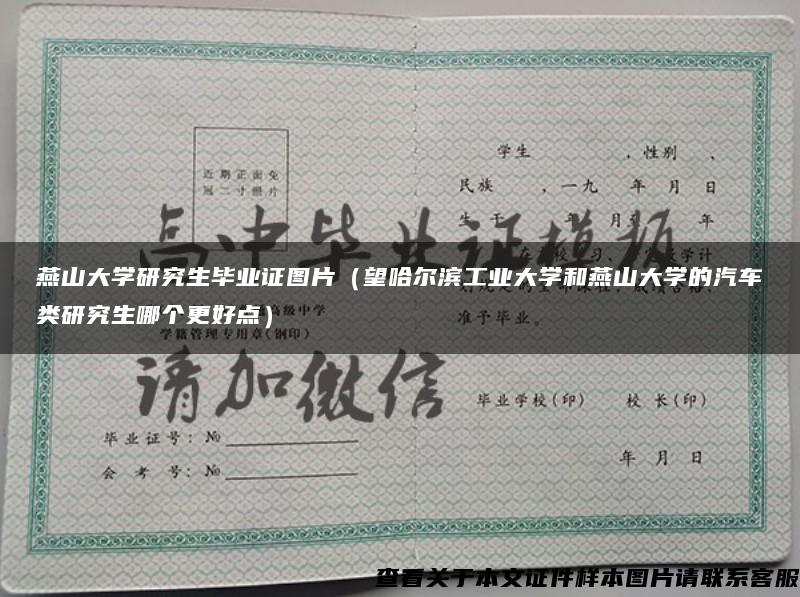 近期正面免
冠二寸照片
学生 ，性别 、
民族 ，一九 年 月 日
生 于 年 月至 年
高中毕业证模板
燕山大学研究生毕业证图片（望哈尔滨工业大学和燕山大学的汽车
类研究生哪个更好点）
准予毕业。
高级中学
学籍管理专用章(钢印)
请加微信
毕业学校(印) 校 长(印)
毕业证号：№
会 考 号：№
年 月 日
查看关于本文证件样本图片请联系客服